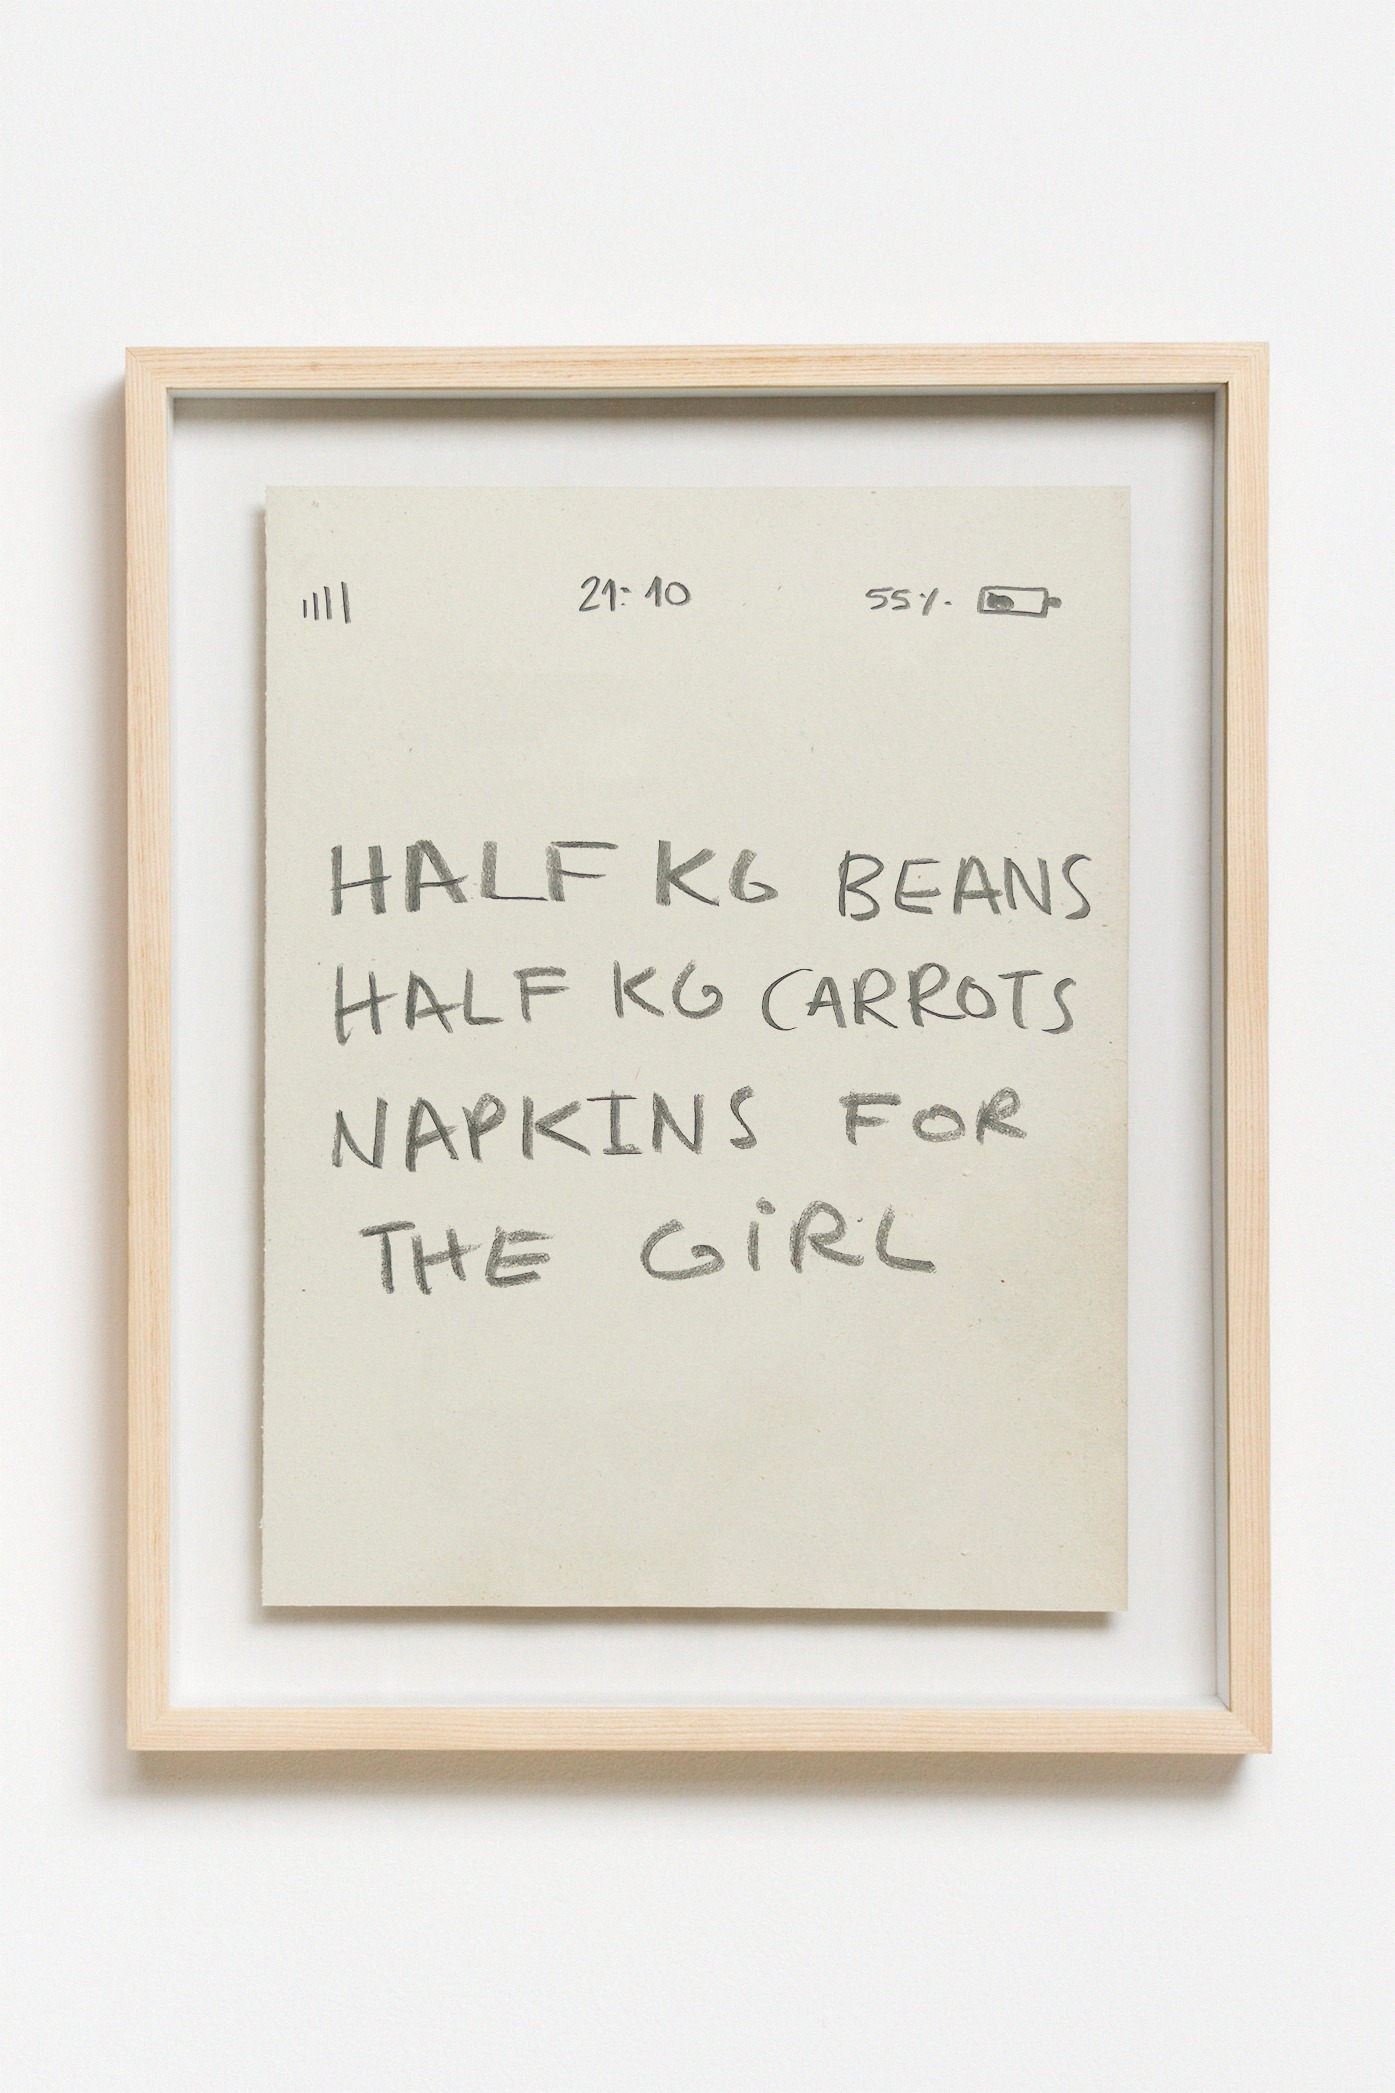 21:10 55%
HALF KG BEANS
HALF KG CARROTS
NAPKINS FOR
THE GiRL